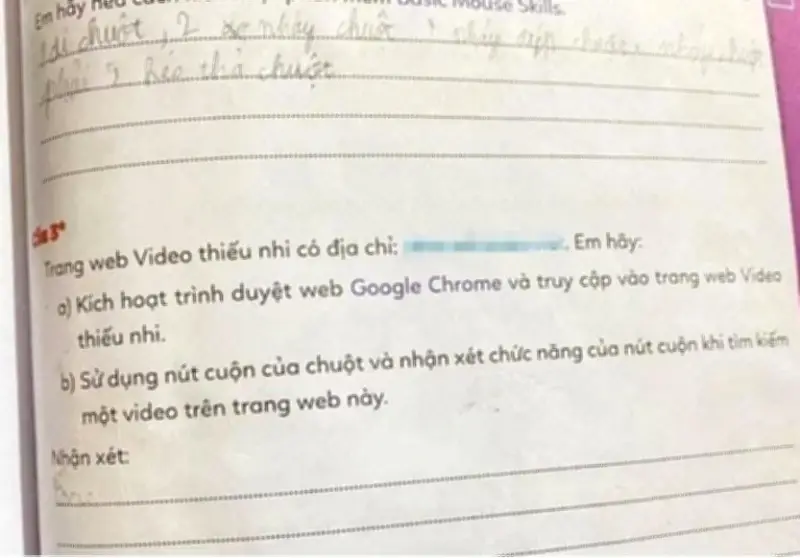 Em hãy nêu Basic Mouse Skills.
chuột, 2 nháy chuột nháy
phải kéo thả chuột
Câu 3*
Trang web Video thiếu nhi có địa chỉ: . Em hãy:
a) Kích hoạt trình duyệt web Google Chrome và truy cập vào trang web Video
thiếu nhi.
b) Sử dụng nút cuộn của chuột và nhận xét chức năng của nút cuộn khi tìm kiếm
một video trên trang web này.
Nhận xét: